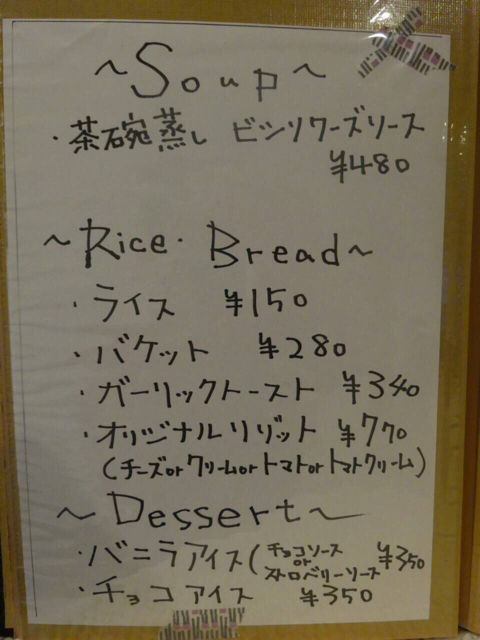 ~Soup~
・茶碗蒸し ビシソワーズソース
¥480
~Rice・Bread~
・ライス ¥150
・バケット ¥280
・ガーリックトースト ¥340
・オリジナルリゾット ¥770
(チーズorクリームorトマトorトマトクリーム)
~Dessert~
・バニラアイス(チョコソース or ストロベリーソース ¥350
・チョコアイス ¥350